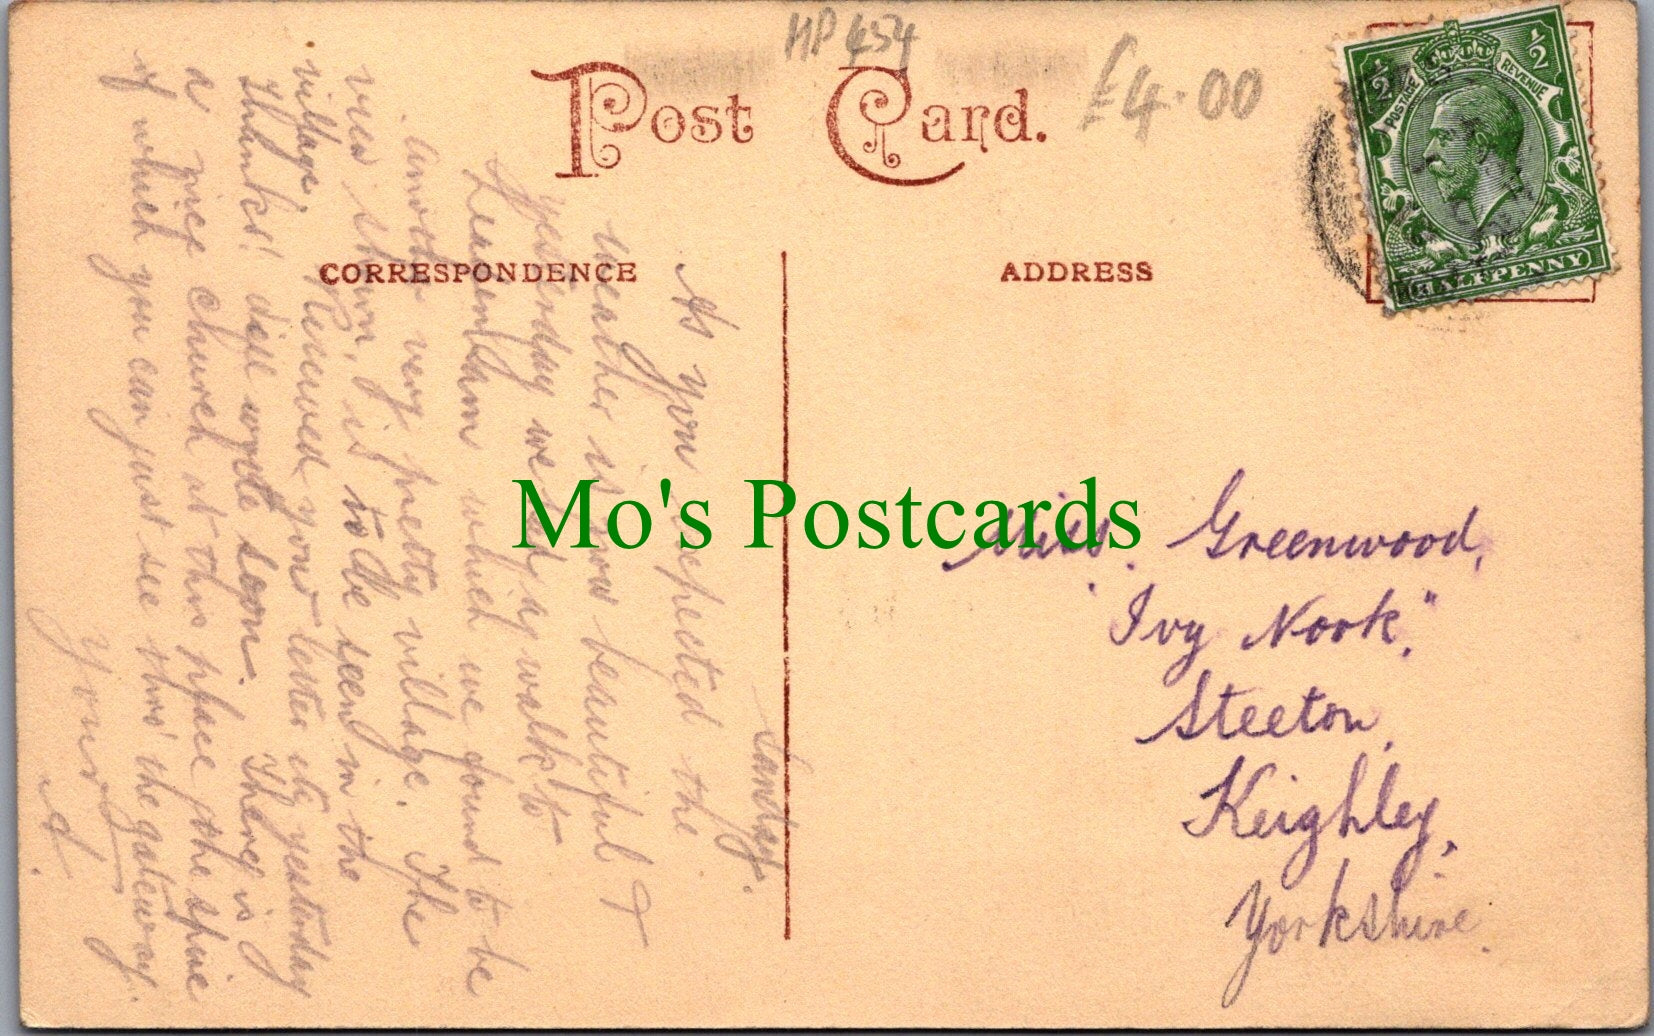 HP 454
£4.00
Post Card.
CORRESPONDENCE
ADDRESS
POSTAGE REVENUE
½ ½
HALFPENNY
Sunday.
As you expected the
weather is now beautiful &
yesterday we had a walk to
which we found to be
another very pretty village. The
view shown, is to be seen in the
village. Received your letter yesterday
thanks! will write soon. There is
a nice church at this place the spire
of which you can just see thro' the gateway.
Yours
A.
Miss Greenwood,
"Ivy Nook",
Steeton,
Keighley,
Yorkshire.
Mo's Postcards